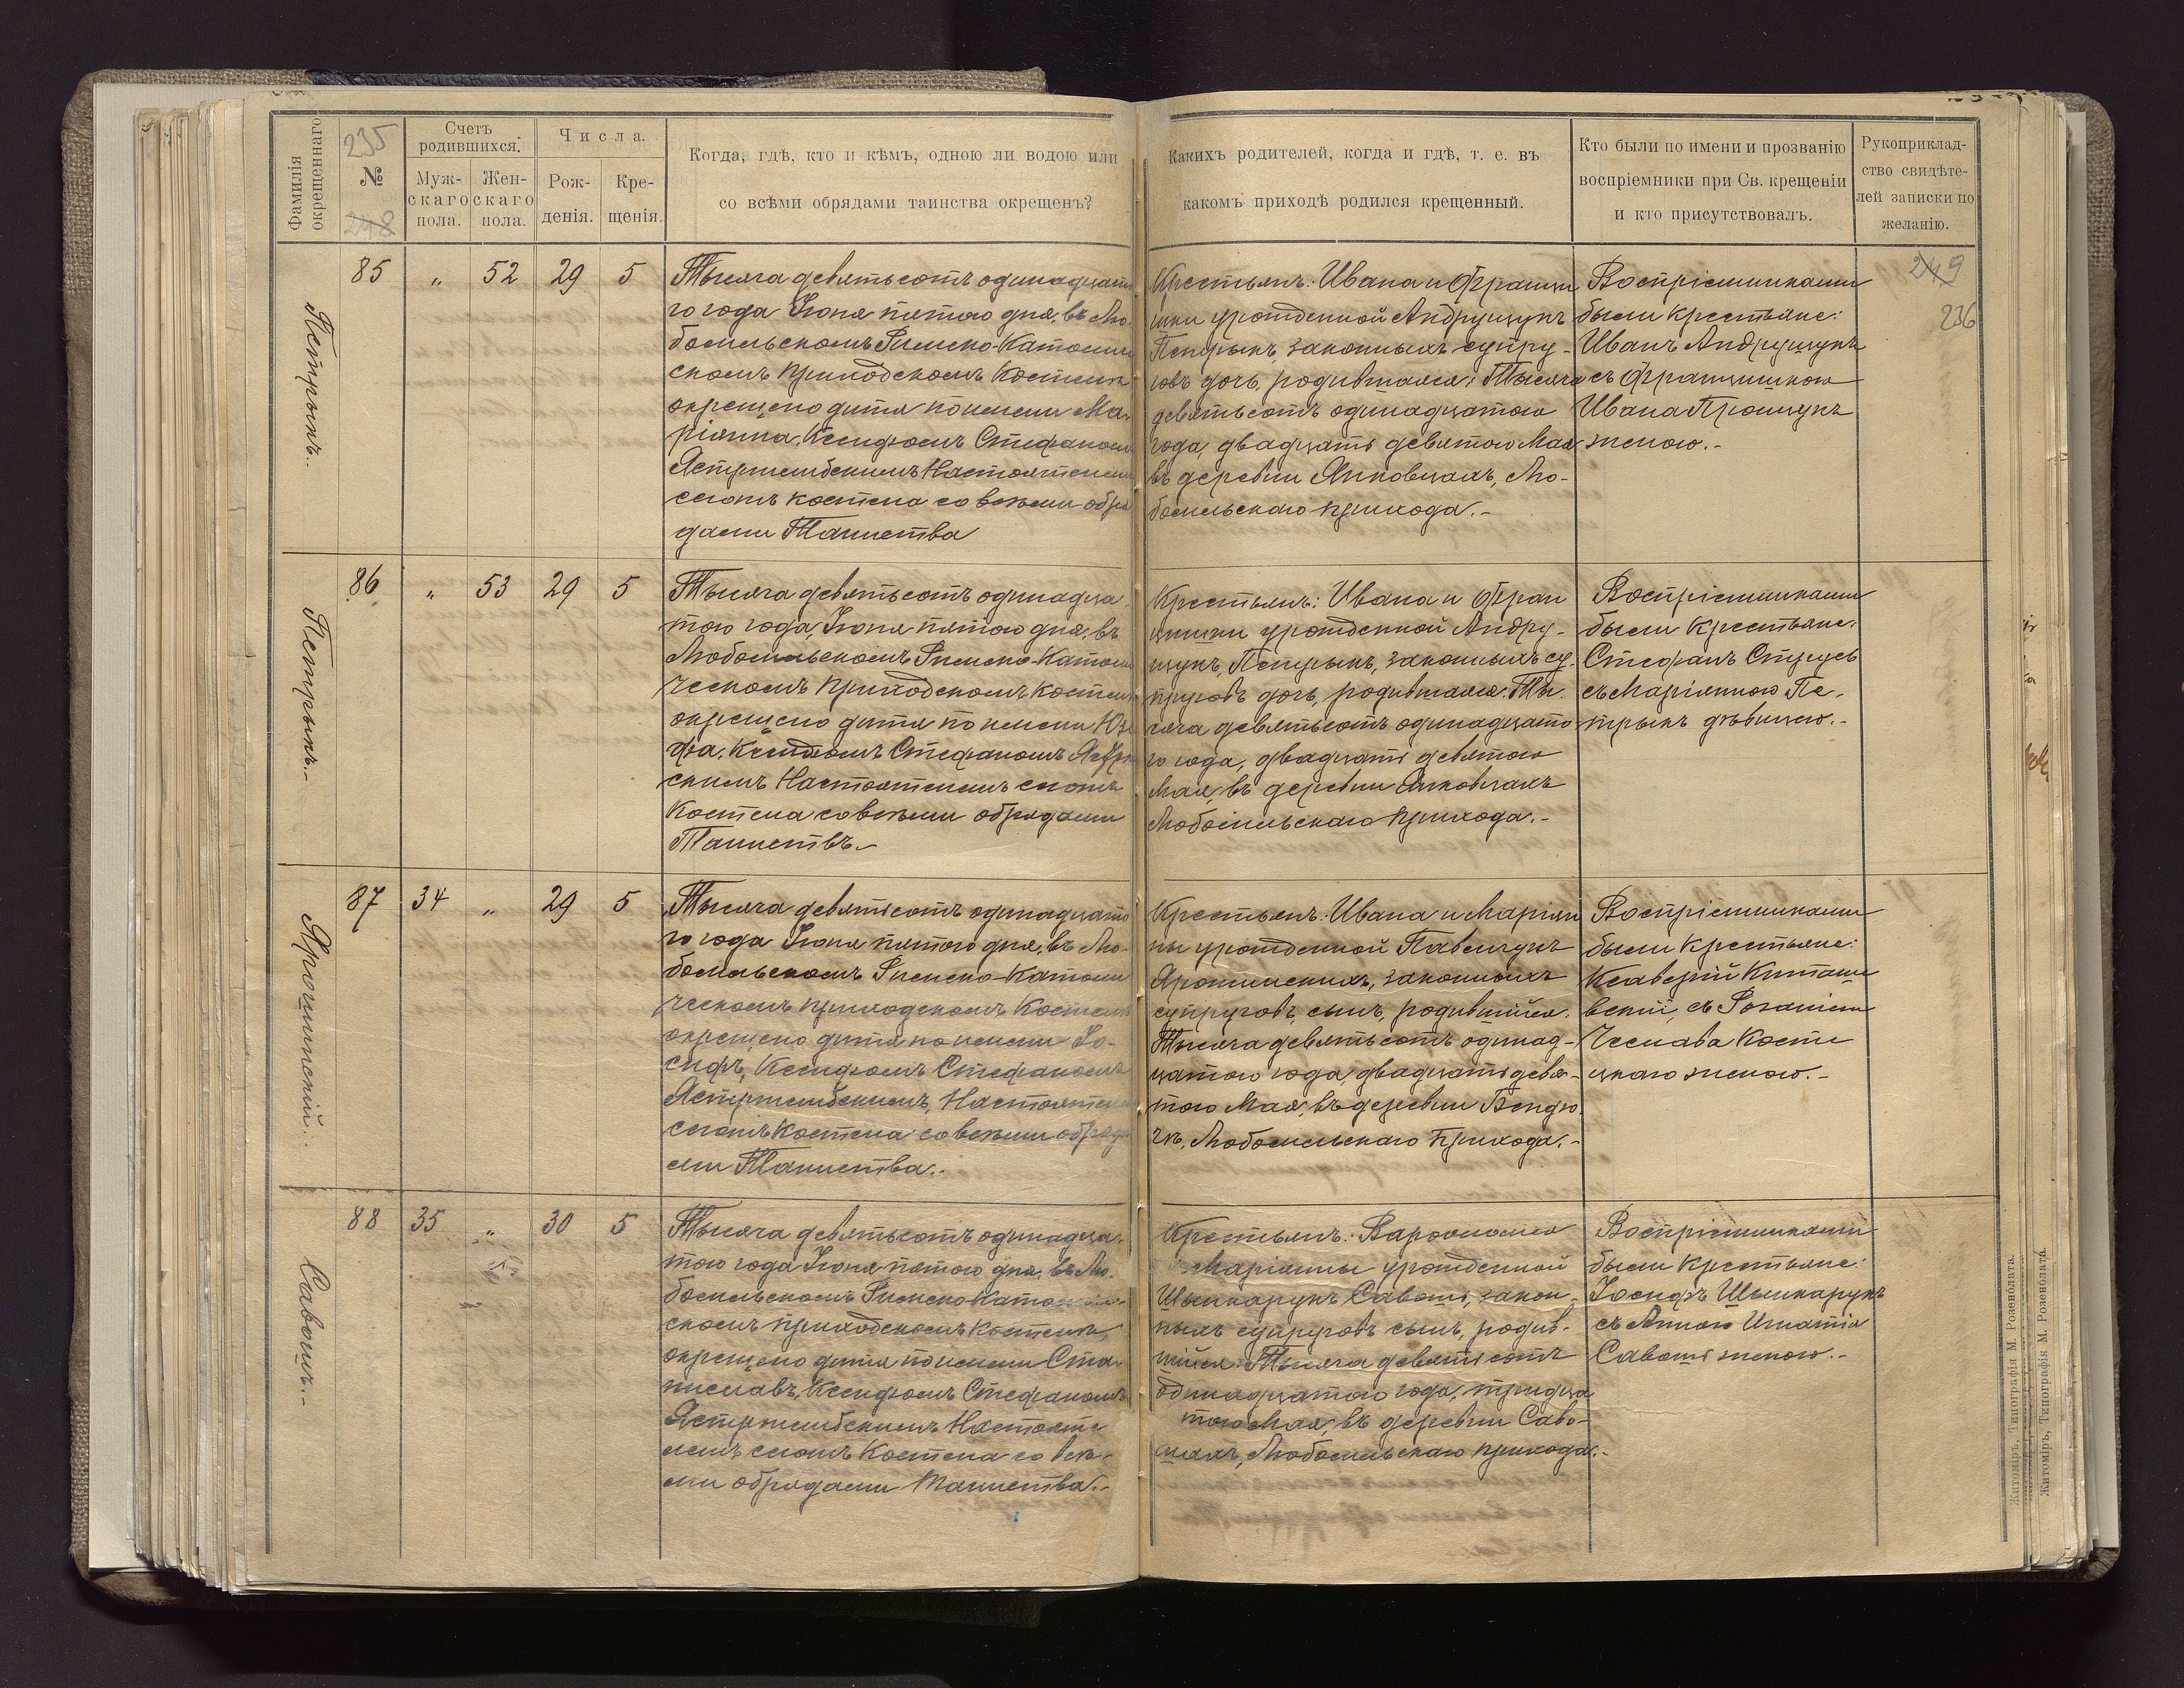 Фамилія окрещеннаго
235
№
248
Счетъ родившихся.
Муж-скаго пола.
Жен-скаго пола.
Числа.
Рож-денія.
Кре-щенія.
Когда, гдѣ, кто и кѣмъ, одною ли водою или
со всѣми обрядами таинства окрещенъ?
Какихъ родителей, когда и гдѣ, т. е. въ
какомъ приходѣ родился крещенный.
Кто были по имени и прозванію
воспріемники при Св. крещеніи
и кто присутствовалъ.
Рукоприклад-
ство свидѣте-
лей записки по
желанію.
249
236
Петрыкъ.
85 „ 52 29 5
Тысяча девятьсотъ одинадцата
го года Іюня пятого дня, въ Лю-
бомльскомъ Римско-Католи
скомъ приходскомъ Костелѣ
окрещено дитя по имени Ма-
ріянна, Ксендзомъ Стефаномъ
Ястржембскимъ Настоятелем
сегожъ костела со всѣми обря
дами Таинства
Крестьянъ: Ивана и Францы
шки урожденной Андрущукъ
Петрыкъ законныхъ супру-
говъ дочь, родившаяся: Тысяча
девятьсотъ одинадцатого
года, двадцать девятого Мая
въ деревни Янковцахъ, Лю-
бомльскаго прихода.-
Воспріемниками
были крестьяне:
Иванъ Андрущукъ
съ Францишкою
Ивана
женою.-
Петрыкъ.-
86 „ 53 29 5
Тысяча девятьсотъ одинадца-
того года, Іюня пятого дня, въ
Любомльскомъ Римско-Католи
ческомъ приходскомъ костелѣ
окрещено дитя по имени Юзе
фа, Ксендзомъ Стефаномъ
скимъ Настоятелемъ сегожъ
Костела со всѣми обрядами
Таинствъ.-
Крестьянъ: Ивана и Фран
цишки урожденной Андру-
щукъ, Петрыкъ, законныхъ су-
пруговъ дочь, родившаяся. Ты-
сяча девятьсотъ одинадцато
го года, двадцать девятого
Мая, въ деревни Янковцахъ
Любомльскаго прихода.-
Воспріемниками
были Крестьяне:
Стефанъ
съ Маріянною Пе-
трыкъ дѣвицею.-
Ярошинскій..
87 34 „ 29 5
Тысяча девятьсотъ одинадцато
го года Іюня пятого дня, въ Лю-
бомльскомъ Римско-Католи
ческомъ приходскомъ Костелѣ
окрещено дитя по имени Іо-
сифъ, Ксендзомъ Стефаномъ
Ястржембскимъ, Настоятелем
сегожъ Костела со всѣми обряда
ми Таинства.-
Крестьянъ: Ивана и Маріян
ны урожденной Павельчукъ
Ярошинскихъ, законныхъ
супруговъ, сынъ, родившійся.
Тысяча девятьсотъ одинад-
цатого года, двадцать девя-
того Мая, въ деревни Бендю
гѣ, Любомльскаго Прихода.-
Воспріемниками
были Крестьяне:
Ксаверій
вскій, съ Розаліею
Чеслава Кости
цкаго женою.-
Савошъ.-
88 35 „ 30 5
Тысяча девятьсотъ одинадца-
того года Іюня пятого дня, въ Лю-
бомльскомъ Римско Католиче-
скомъ приходскомъ костелѣ,
окрещено дитя по имени Ста-
ниславъ, Ксендзомъ Стефаномъ
Ястржембскимъ Настояте
лемъ сегожъ Костела со всѣ-
ми обрядами Таинства.-
Крестьянъ: Варфоломея
Маріанны урожденной
Шинкарукъ Савошъ, закон-
ныхъ супруговъ сынъ, родив-
шійся. Тысяча девятьсотъ
одинадцатого года, тридца
того Мая, въ деревни Саво-
шахъ, Любомльскаго прихода.-
Воспріемниками
были Крестьяне:
Іосифъ Шинкарукъ
съ Анною Игнатія
Савошъ женою.-
Житоміръ, Типографія М. Розенблата.
Житоміръ, Типографія М. Розенблата.